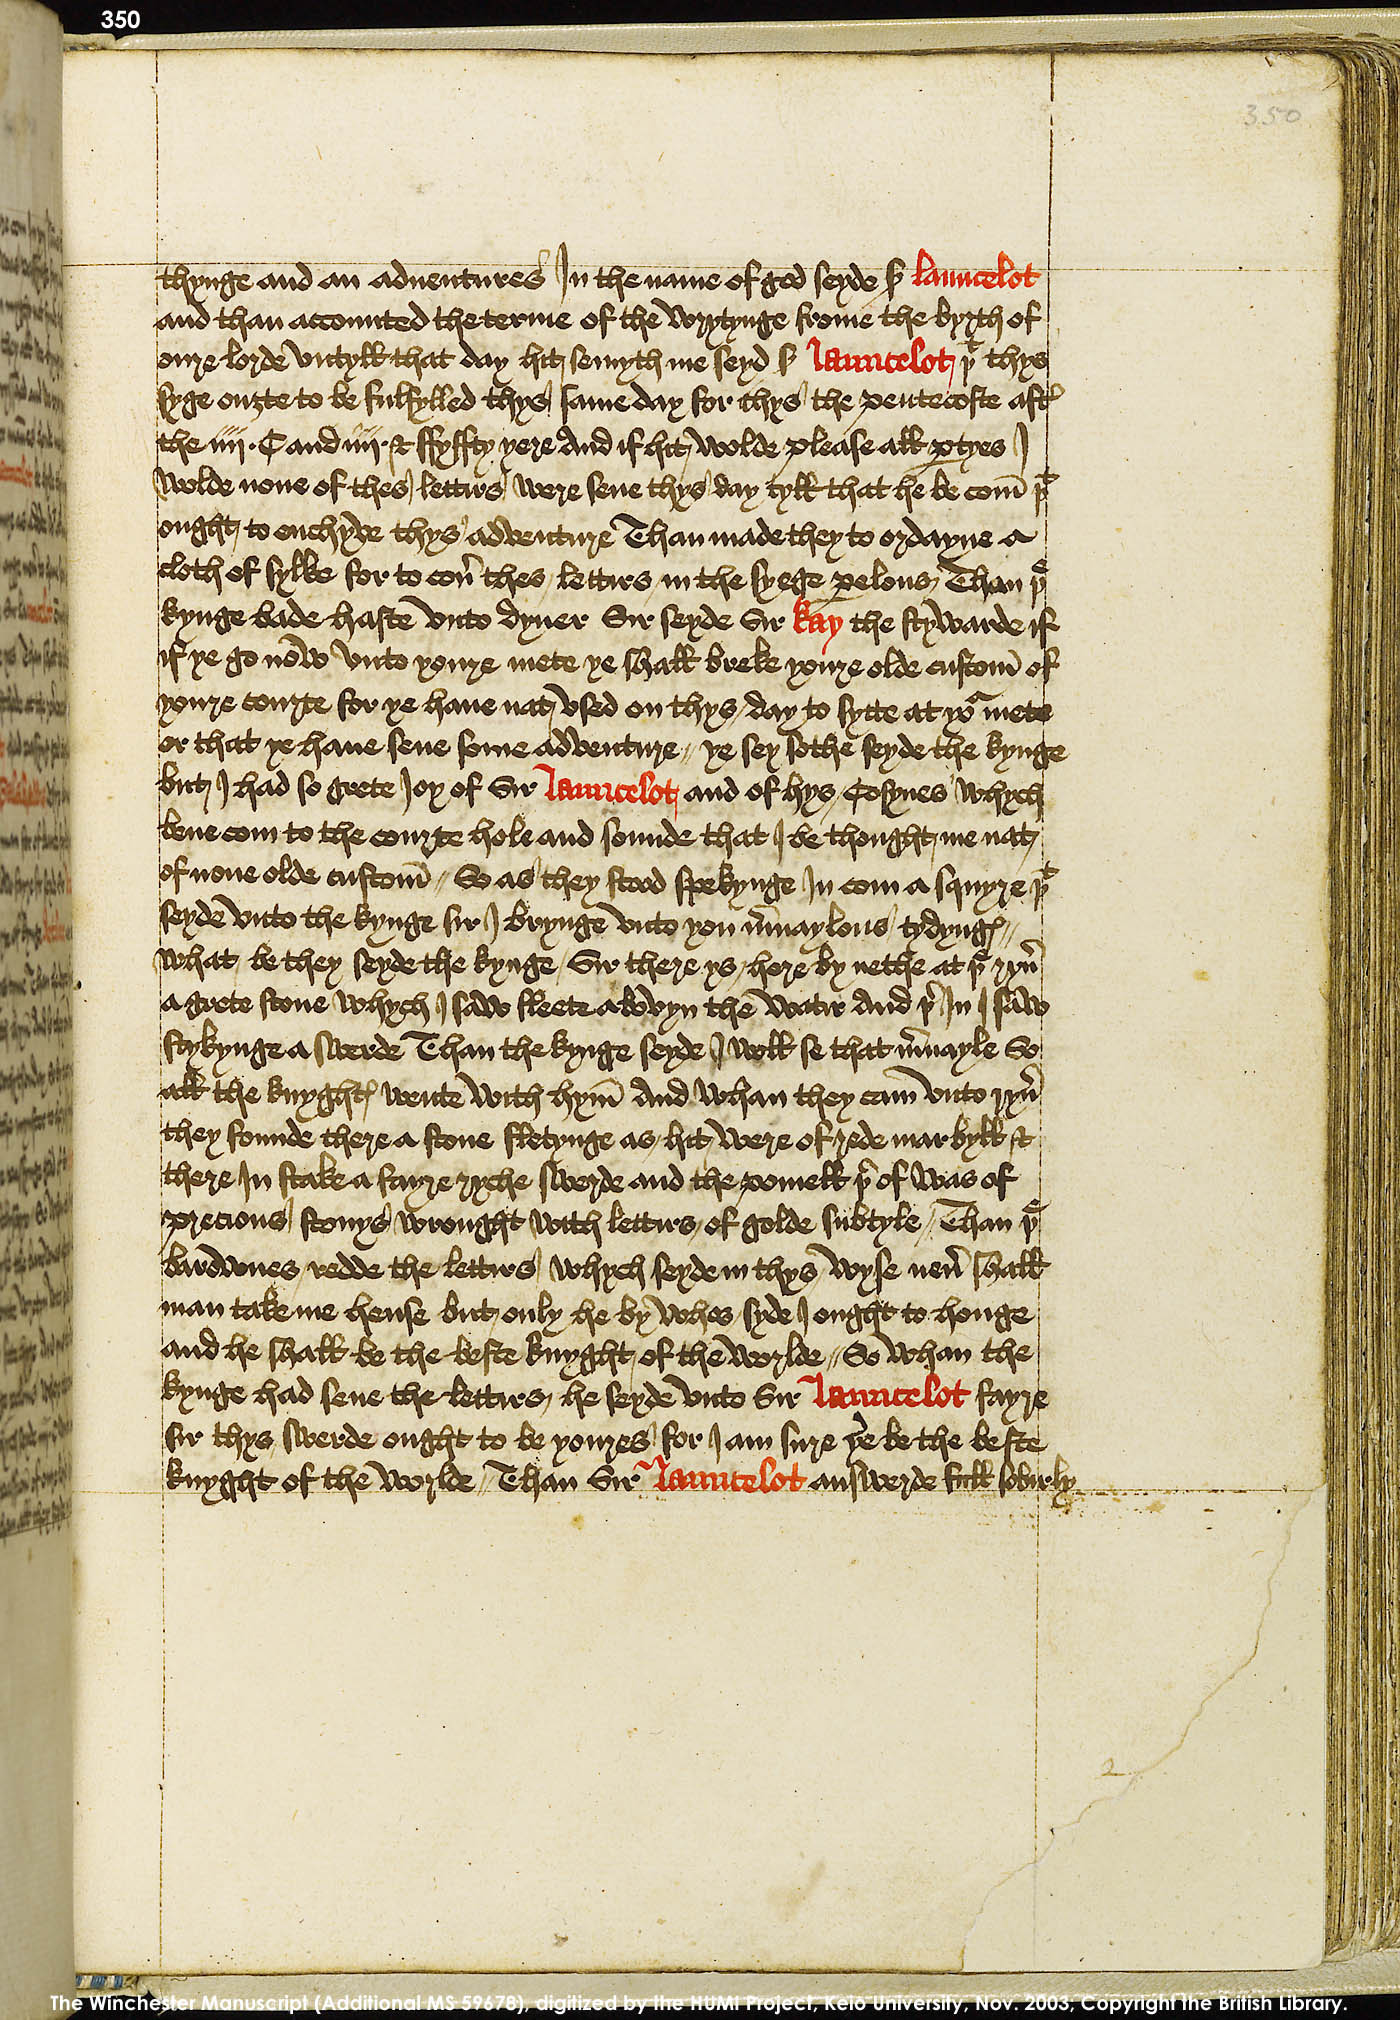 350
350
thynge and an aduentures In the name of god seyde sr Launcelot
and than accounted the terme of the wrytynge frome the byrth of
oure lorde vntyll that day hit semyth me seyd sr Launcelot þt thys
syge ouȝte to be fulfylled thys same day for thys the pentecoste aftr
the iiij · C and iiij · & ffyffty yere And if hit wolde please all ptyes I
wolde none of thes lettirs were sene thys day tyll that he be com þt
ought to enchyve thys adventure Than made they to ordayne a
cloth of sylke for to cou thes lettirs in the syege pelous Than þe
kynge bade haste vnto dyner Sir seyde Sir kay the stywarde if
if ye go now vnto youre mete ye shall breke youre olde custom of
youre courte for ye haue nat vsed on thys day to sytte at yor mete
or that ye haue sene some adventure // ye sey sothe seyde the kynge
but I had so grete Joy of Sir Launcelot and of hys Cosynes whych
bene com to the courte hole and sounde that I be thought me nat
of none olde custom // So as they stood spekynge In com a squyre þt
seyde vnto the kynge sir I brynge vnto you muaylous tydyngs //
what be they seyde the kynge Sir there ys here by nethe at þe ryu
a grete stone whych I saw fleete abovyn the watir And þr In I saw
stykynge a swerde Than the kynge seyde I woll se that muayle So
all the knyghts wente with hym And whan they cam vnto ryu
they founde there a stone fletynge as hit were of rede marbyll &
there In stake a fayre ryche swerde and the pomell þr of was of
precious stonys wrought with lettirs of golde subtyle // Than þe
bardwnes redde the lettirs whych seyde in thys wyse neu shall
man take me hense but only he by whos syde I ought to honge
and he shall be the beste knyght of the worlde // So whan the
kynge had sene the lettirs he seyde vnto Sir Launcelot fayre
sir thys swerde ought to be youres for I am sure ye be the beste
knyght of the worlde // Than Sir Launcelot answerde full sobirly
2
The Winchester Manuscript (Additional MS 59678), digitized by the HUMI Project, Keio University, Nov. 2003, Copyright the British Library.